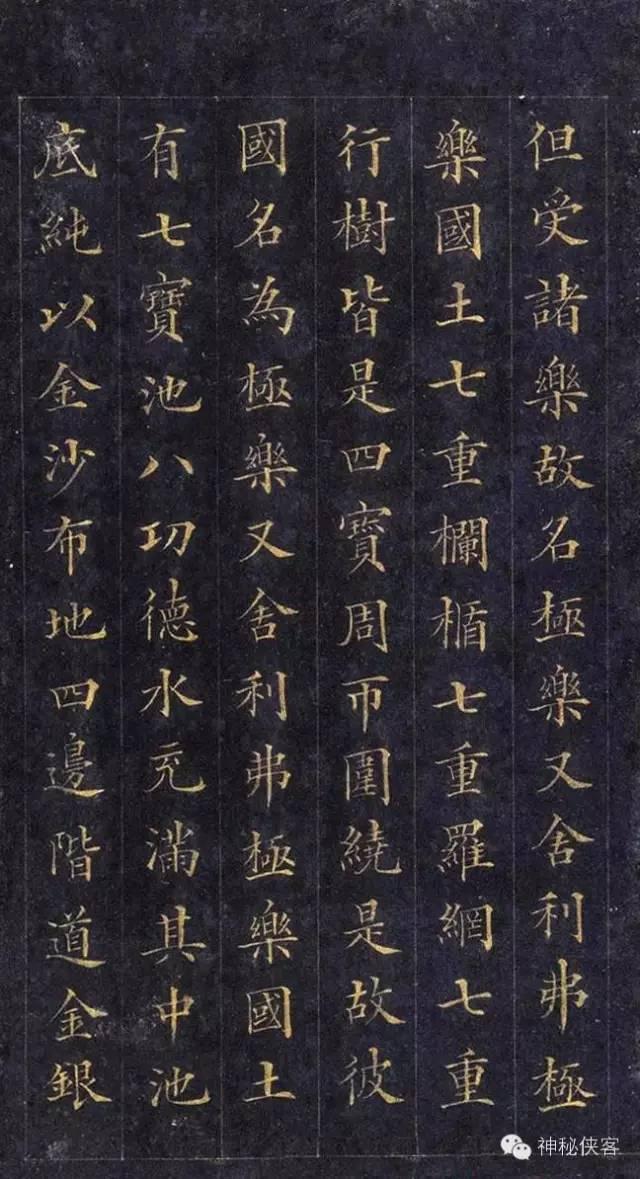 但受諸樂故名極樂又舍利弗極
樂國土七重欄楯七重羅網七重
行樹皆是四寳周帀圍繞是故彼
國名為極樂又舍利弗極樂國土
有七寶池八功德水充滿其中池
底純以金沙布地四邊階道金銀
神秘侠客